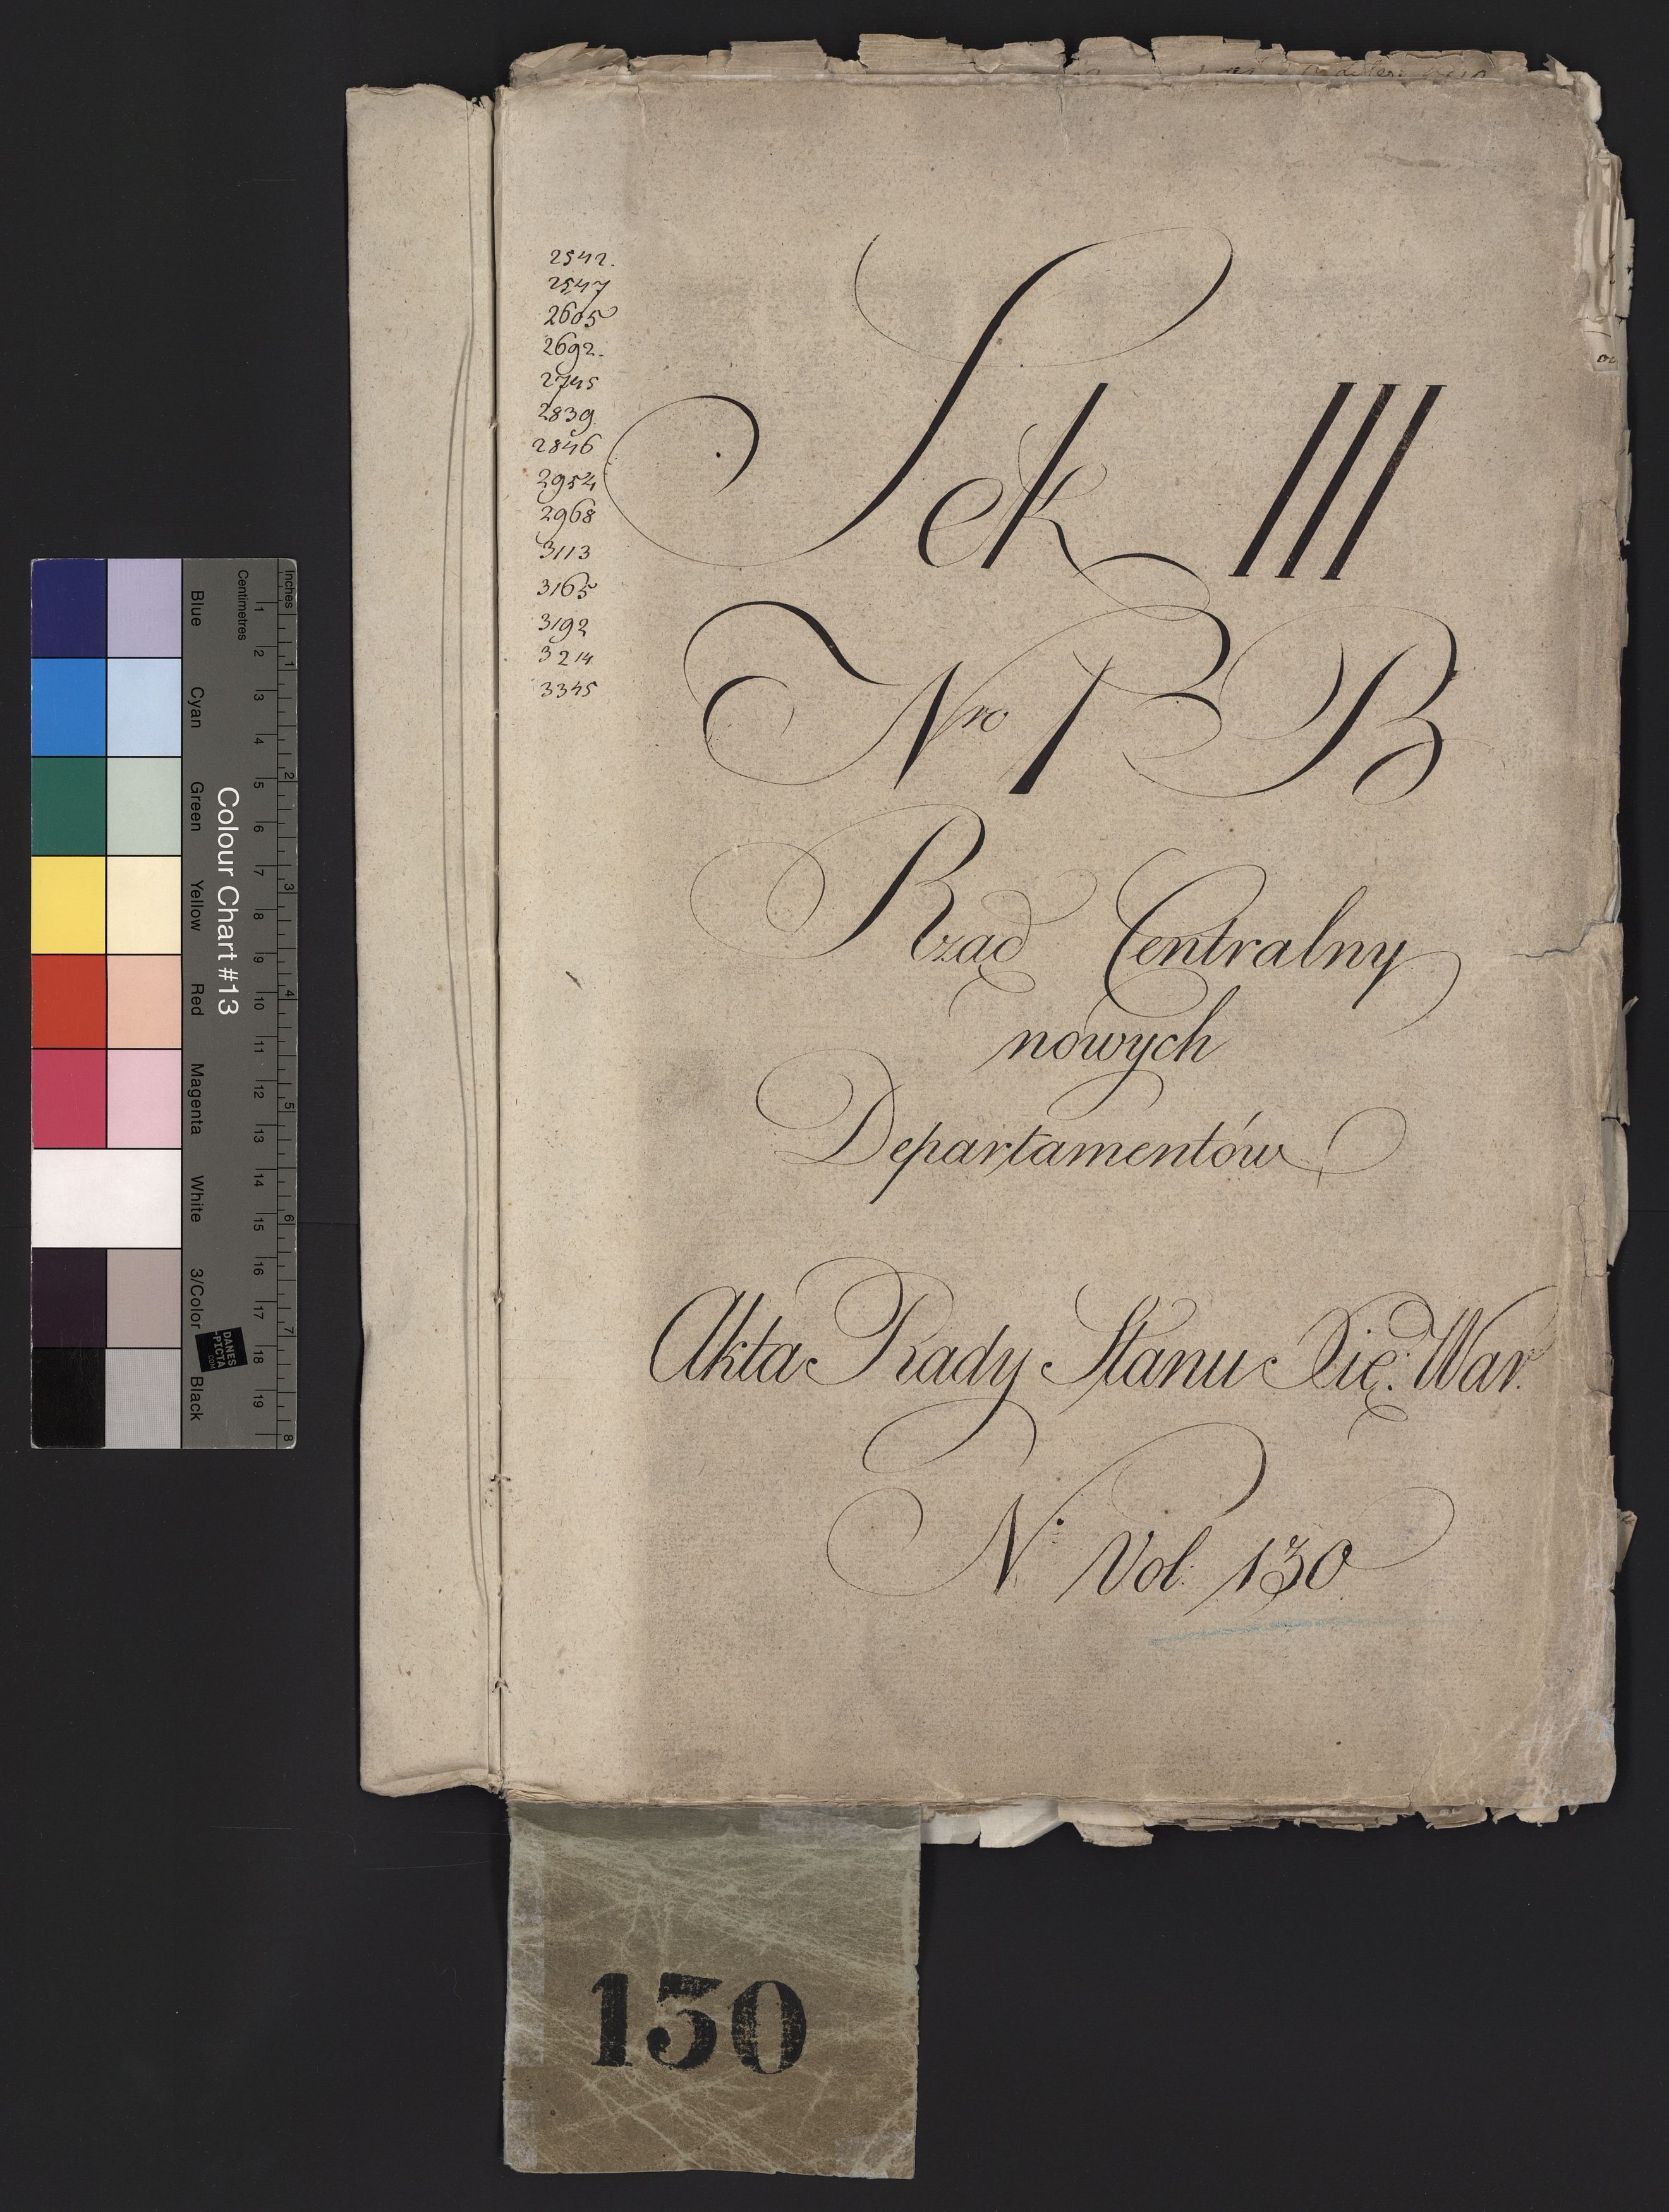 2542.
2547
2605
2692.
2745
2839
2846
2954
2968
3113
3165
3192
3214
3345
Sek III
Nro 1 B
Rząd Centralny
nowych
Departamentów
Akta Rady Stanu Xię: War.
N: Vol: 130
130
Colour Chart #13
Inches
Centimetres
Blue
Cyan
Green
Yellow
Red
Magenta
White
3/Color
Black
1 2 3 4 5 6 7 8 9 10 11 12 13 14 15 16 17 18 19
1 2 3 4 5 6 7 8
DANES
-PICTA
.COM